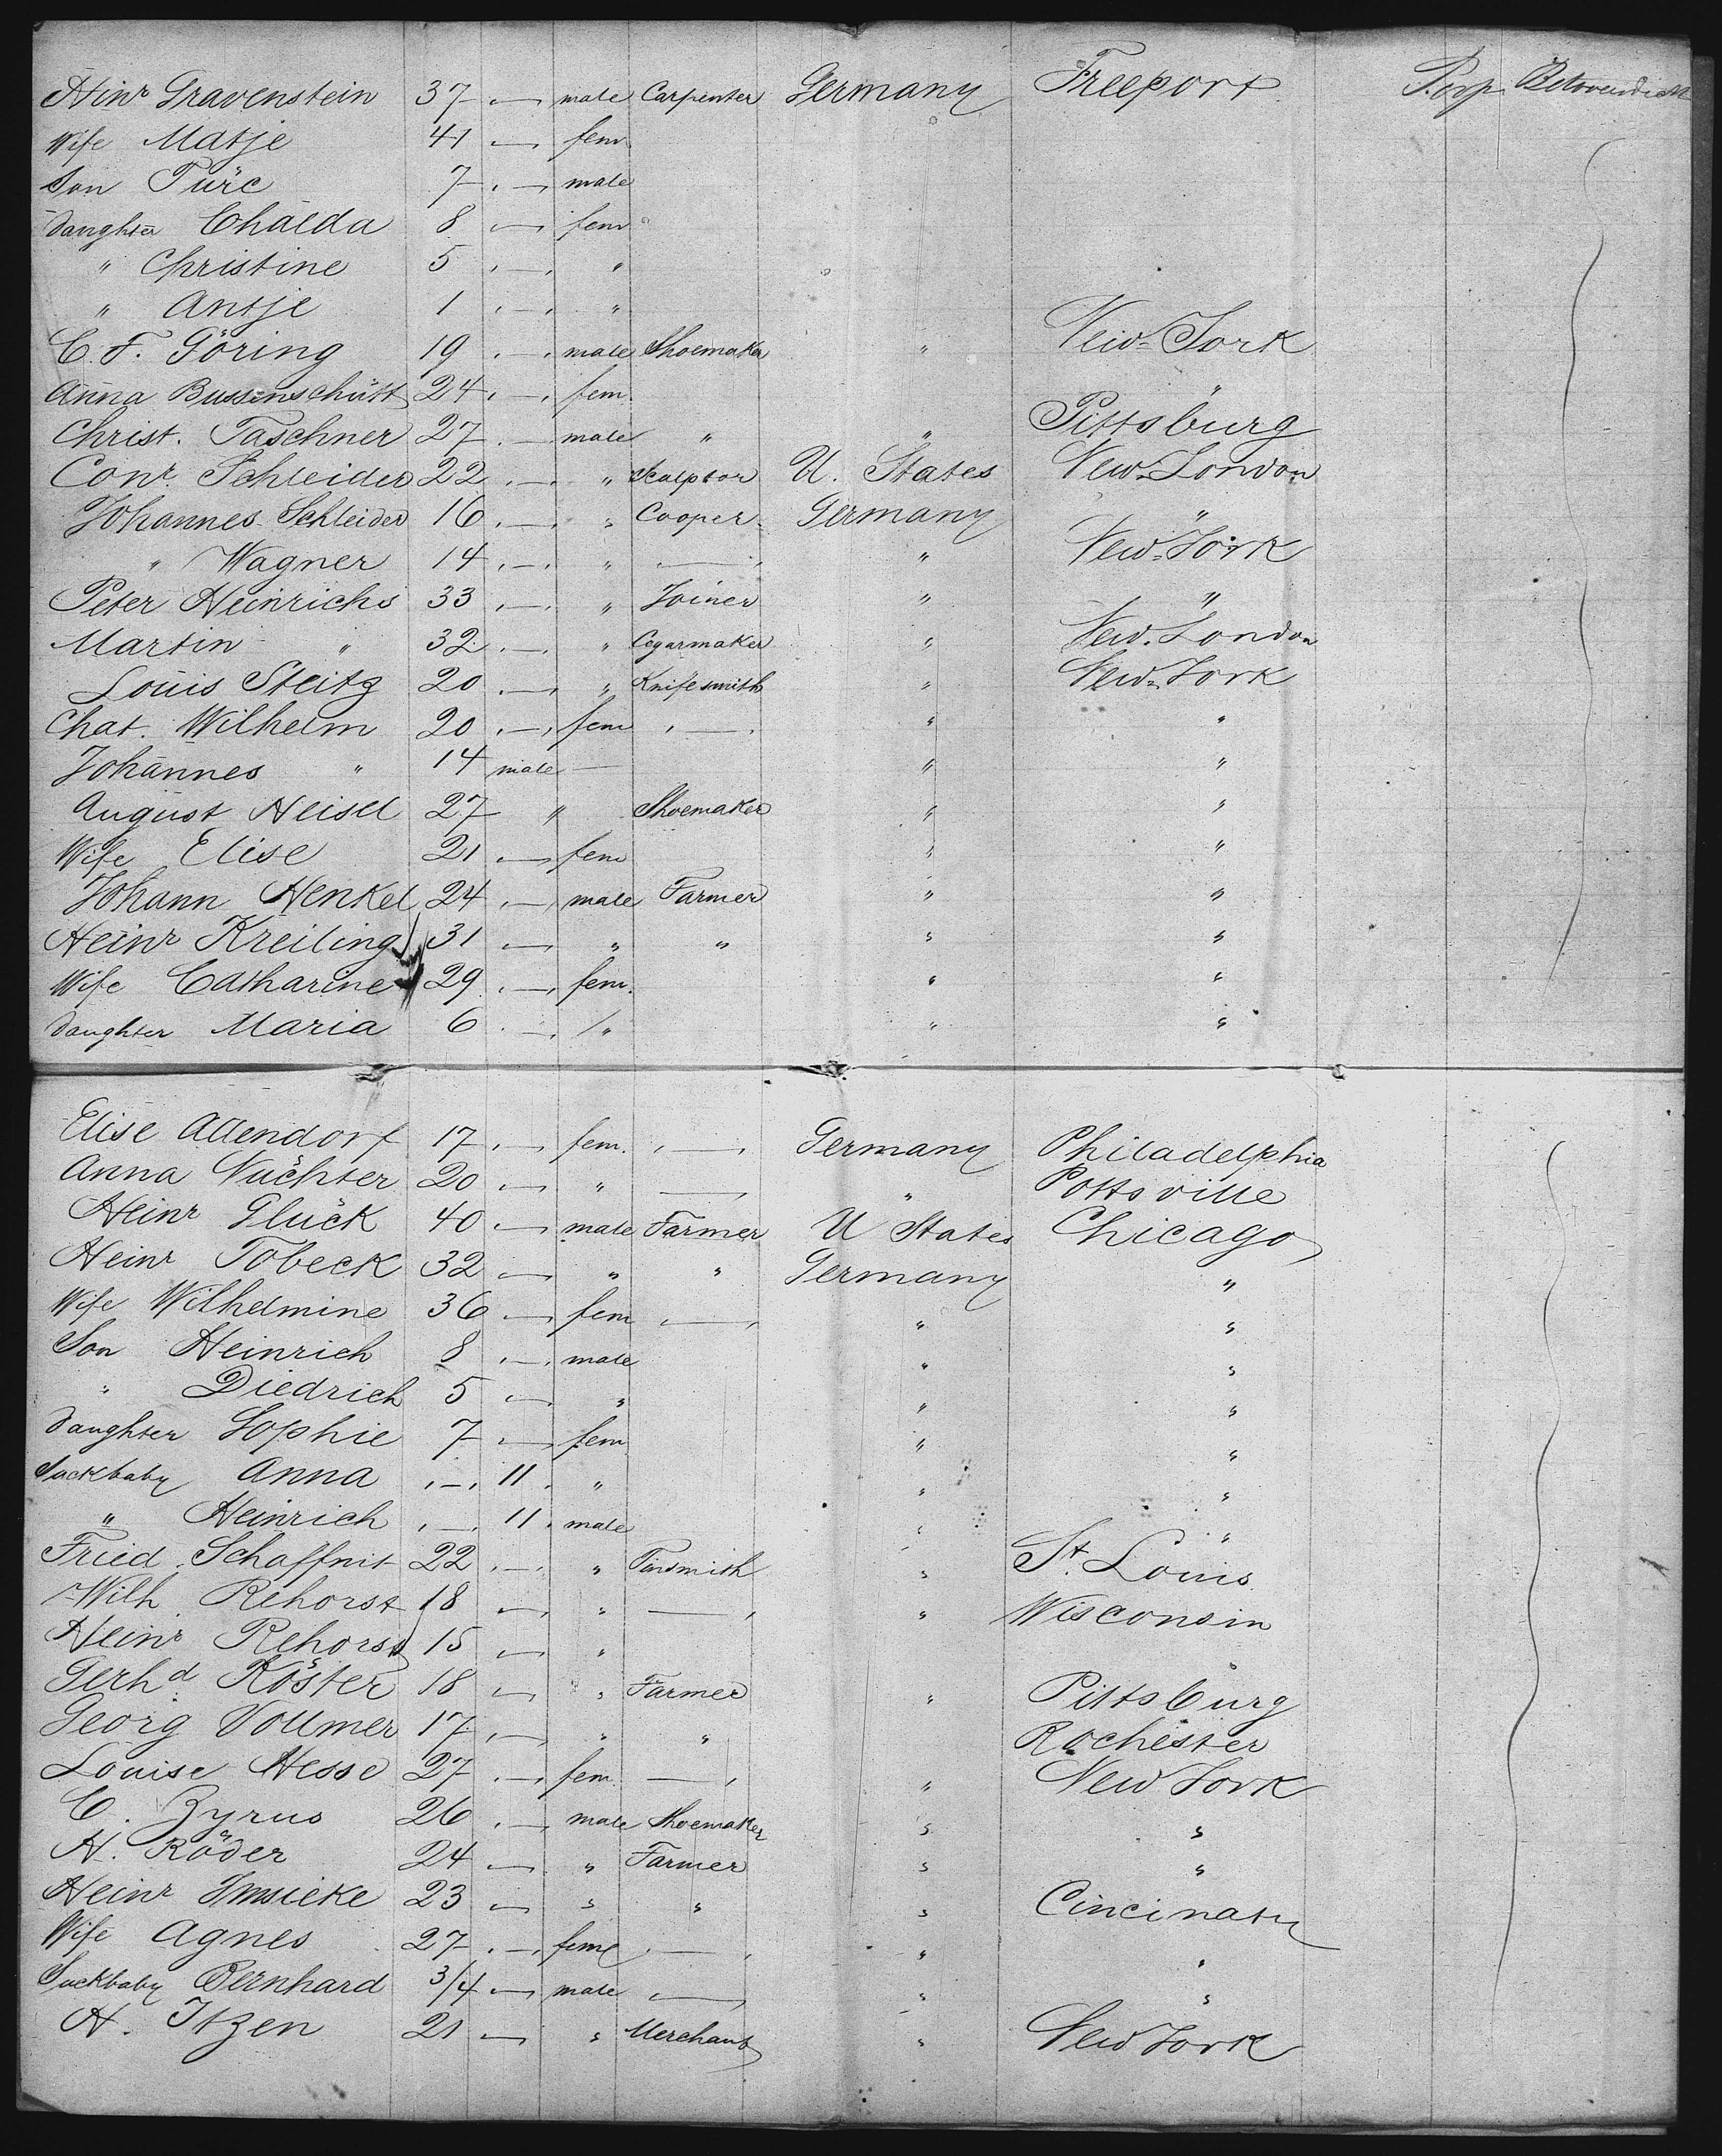 Hinr Gravenstein 37 „—„ male Carpenter Germany Freeport
Wife Matje 41 „—„ fem
Son Türc 7 „—„ male
Daughter Chalda 8 „—„ fem
" Christine 5 „—„ "
" Antje 1 „—„ "
C. F. Göring 19 „—„ male Shoemaker " New-York
Anna Bussenschütt 24 „—„ fem. "
Christ. Taschner 27 „— male " " Pittsburg
Conr. Schleider 22 „—„ " Scalptor U. States New-London
Johannes Schleider 16 „—„ " Cooper Germany "
" Wagner 14 „—„ " „—„ " New-York
Peter Heinrichs 33 „—„ " Joiner " "
Martin " 32 „—„ " Cegarmaker " New-London
Louis Steitz 20 „—„ " Knifesmith " New-York
Chat. Wilhelm 20 „—„ fem „—„ " "
Johannes " 14 male — " "
August Heisel 27 " Shoemaker " "
Wife Elise 21 „—„ fem " "
Johann Henkel 24 „—„ male Farmer " "
Heinr Kreiling 31 „—„ " " " "
Wife Catharine 29 „—„ fem. " "
Daughter Maria 6 „—„ " " "
Elise Allendorf 17 „—„ fem. „—„ Germany Philadelphia
Anna Nüchter 20 „—„ " —„ " Pottsville
Heinr Glück 40 „—„ male Farmer U States Chicago
Heinr Tobeck 32 „—„ " " Germany "
Wife Wilhelmine 36 „—„ fem „—„ " "
Son Heinrich 8 „—„ male " "
" Diedrich 5 „—„ " " "
Daughter Sophie 7 „—„ fem " "
Suckbaby Anna „—„ 11 " " "
" Heinrich „—„ 11 male " "
Fried. Schaffnit 22 „—„ " Tinsmith " St. Louis
Wilh. Rehorst 18 „—„ " —„ " Wisconsin
Heinr Rehorst 15 „—„ "
Gerhd. Köster 18 „—„ " Farmer " Pittsburg
Georg Vollmer 17 „—„ " " Rochester
Louise Hesse 27 „—„ fem. —„ " New York
C. Zyrus 26 „—„ male Shoemaker " "
H. Röder 24 „—„ " Farmer " "
Heinr Imsieke 23 „—„ " " " Cincinaty
Wife Agnes 27 „—„ feml „—„ " "
Suckbaby Bernhard 3/4 „—„ male „—„ " "
H. Itzen 21 „—„ " Merchant " New York